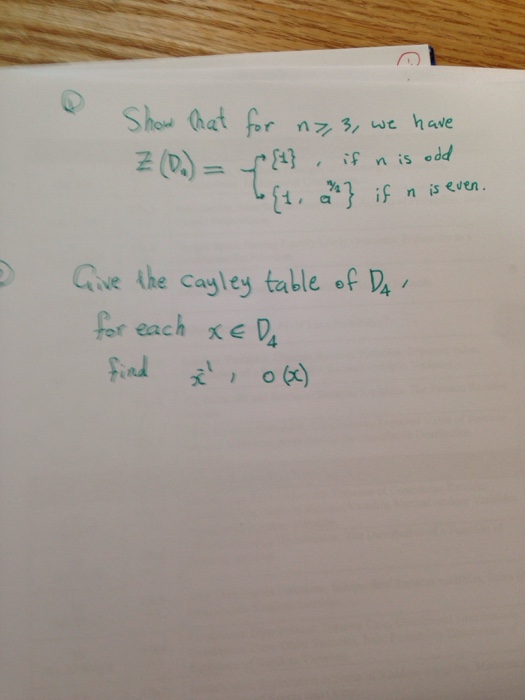 Show that for n ⩾ 3, we have
Z(Dₙ) = { {1} , if n is odd
{1, a^{n/2}} if n is even.
Give the cayley table of D₄,
for each x ∈ D₄
find x⁻¹, o(x)